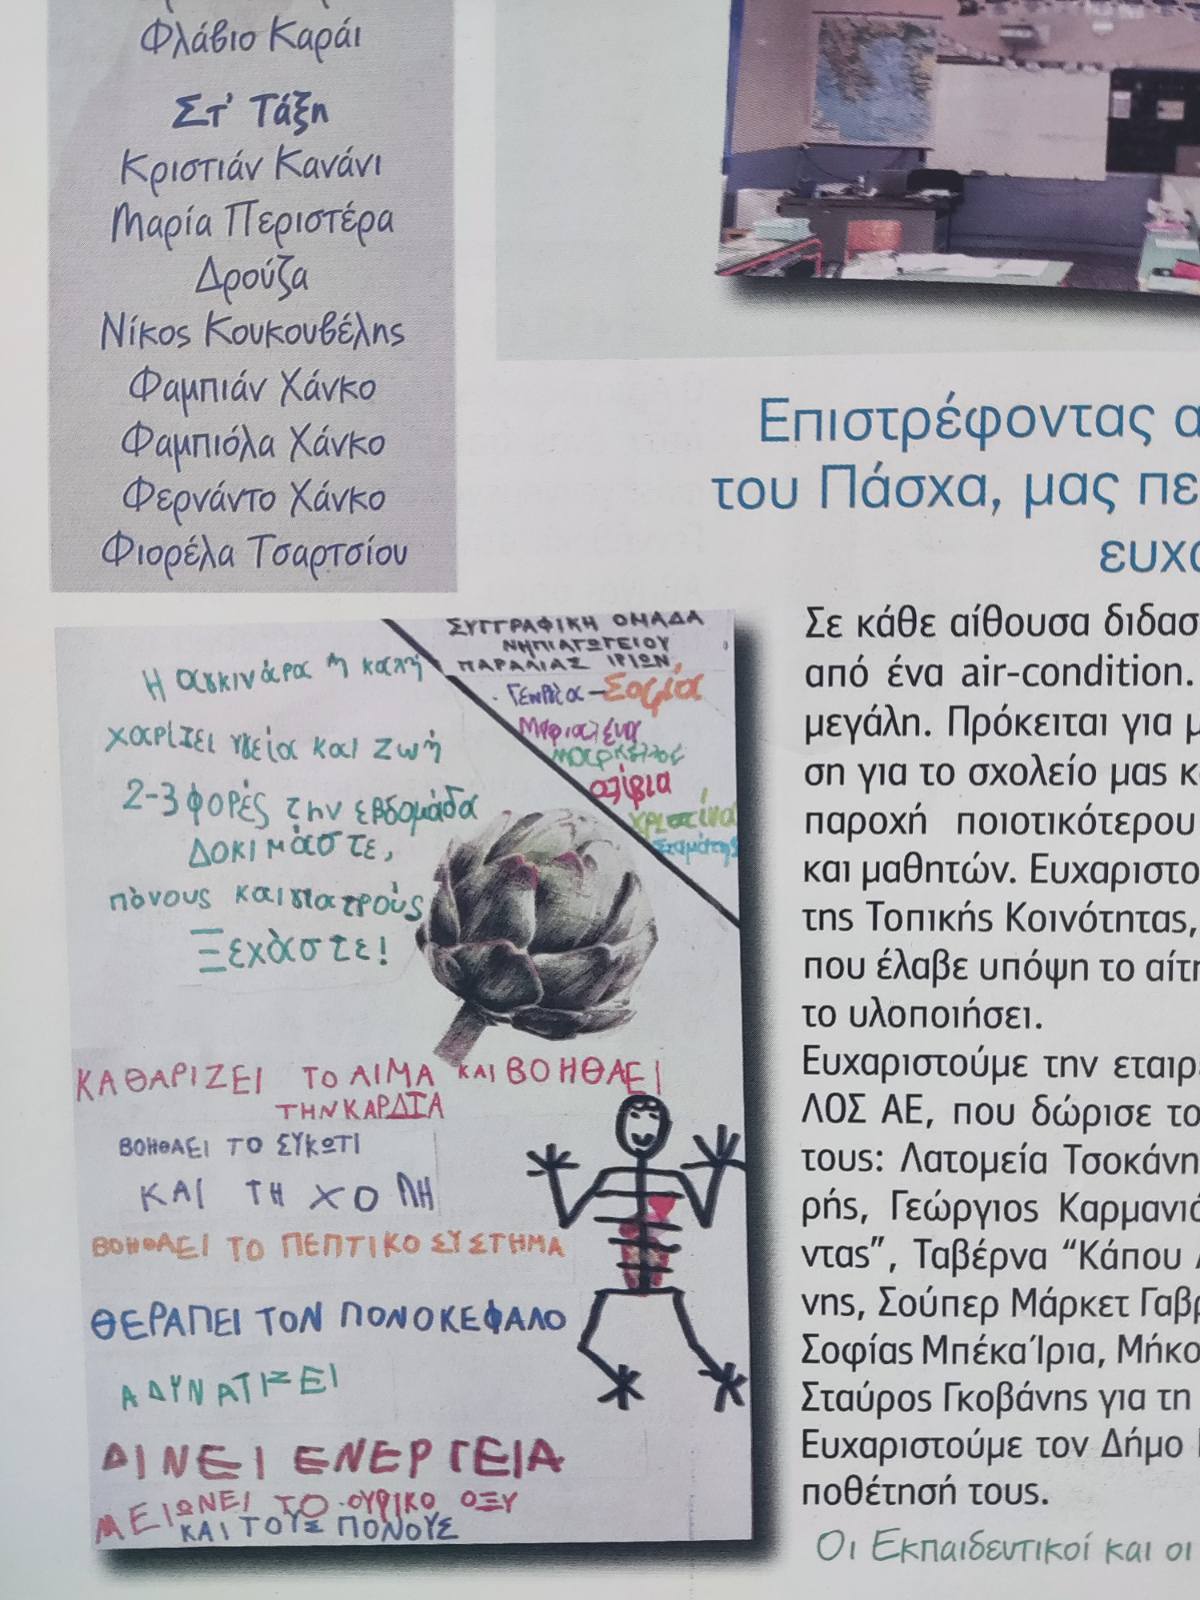 Φλάβιο Καράι
Στ' Τάξη
Κριστιάν Κανάνι
Μαρία Περιστέρα
Δρούζα
Νίκος Κουκουβέλης
Φαμπιάν Χάνκο
Φαμπιόλα Χάνκο
Φερνάντο Χάνκο
Φιορέλα Τσαρτσίου
ΣΥΓΓΡΑΦΙΚΗ ΟΜΑΔΑ
ΝΗΠΙΑΓΩΓΕΙΟΥ
ΠΑΡΑΛΙΑΣ ΙΡΙΩΝ
Σοφία
Μαριαλένα
Μαρκέλλος
αλίβια
χριστίνα
Σταμάτης
Η αγκινάρα η καλή
χαρίζει υγεία και ζωή
2-3 φορές την εβδομάδα
ΔΟΚΙΜάστε,
πόνους και γιατρούς
Ξεχάστε!
ΚΑΘΑΡΙΖΕΙ ΤΟ ΑΙΜΑ ΚΑΙ ΒΟΗΘΑΕΙ
ΤΗΝ ΚΑΡΔΙΑ
ΒΟΗΘΑΕΙ ΤΟ ΣΥΚΩΤΙ
ΚΑΙ ΤΗ ΧΟΛΗ
ΒΟΗΘΑΕΙ ΤΟ ΠΕΠΤΙΚΟ ΣΥΣΤΗΜΑ
ΘΕΡΑΠΕΙ ΤΟΝ ΠΟΝΟΚΕΦΑΛΟ
ΑΔΥΝΑΤΙΖΕΙ
ΔΙΝΕΙ ΕΝΕΡΓΕΙΑ
ΜΕΙΩΝΕΙ ΤΟ ΟΥΡΙΚΟ ΟΞΥ
ΚΑΙ ΤΟΥΣ ΠΟΝΟΥΣ
Επιστρέφοντας α
του Πάσχα, μας πε
ευχα
Σε κάθε αίθουσα διδασ
από ένα air-condition.
μεγάλη. Πρόκειται για μ
ση για το σχολείο μας κ
παροχή ποιοτικότερου
και μαθητών. Ευχαριστο
της Τοπικής Κοινότητας,
που έλαβε υπόψη το αίτη
το υλοποιήσει.
Ευχαριστούμε την εταιρ
ΛΟΣ ΑΕ, που δώρισε το
τους: Λατομεία Τσοκάνη
ρής, Γεώργιος Καρμανιό
ντας”, Ταβέρνα “Κάπου
νης, Σούπερ Μάρκετ Γαβρ
Σοφίας Μπέκα Ίρια, Μήκο
Σταύρος Γκοβάνης για τη
Ευχαριστούμε τον Δήμο
ποθέτησή τους.
Οι Εκπαιδευτικοί και οι